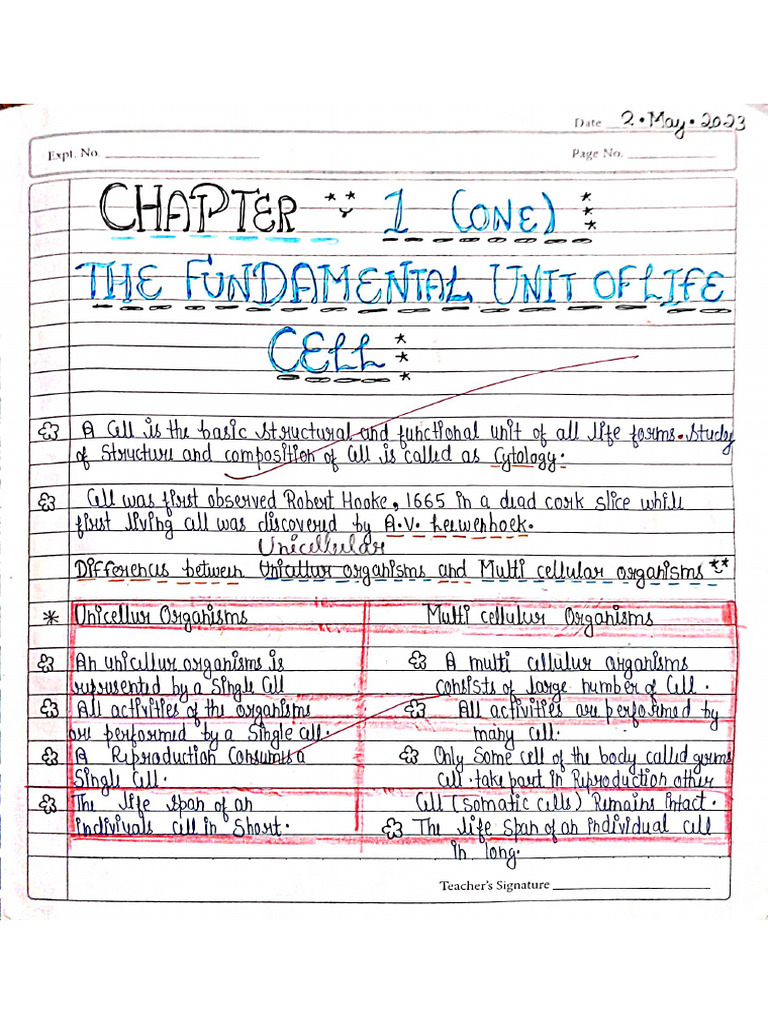 Date 2.May.2023
Expt. No.
Page No.
CHAPTER 1 (ONE)
THE FUNDAMENTAL UNIT OF LIFE
CELL
A Cell is the basic structural and functional unit of all life forms. Study
of Structure and composition of Cell is called as Cytology.
Cell was first observed Robert Hooke, 1665 in a dead cork slice while
first living cell was discovered by A.V. Leewenhoek.
Unicellular
Differences between Unicellur organisms and Multi cellular organisms
* Unicellur Organisms
Multi cellulur Organisms
An unicellur organisms is
represented by a Single Cell
A multi cellulur organisms
consists of large number of Cell.
All activities of the organisms
are performed by a Single cell.
All activities are performed by
many cell.
A Reproduction Consums a
Single Cell.
Only Some cell of the body called germs
cell take part in Reproduction other
Cell (somatic cells) Remains intact.
The life span of an
indiviuals cell in Short.
The life span of an individual cell
in long.
Teacher's Signature